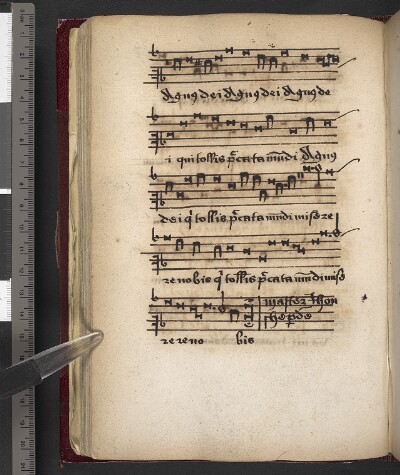 Agnus dei Agnus dei Agnus de
i qui tollis pccata mūdi Agnus
dei q tollis pccata mundi misere
re nobis q tollis pccata mūdi mise
re re no bis